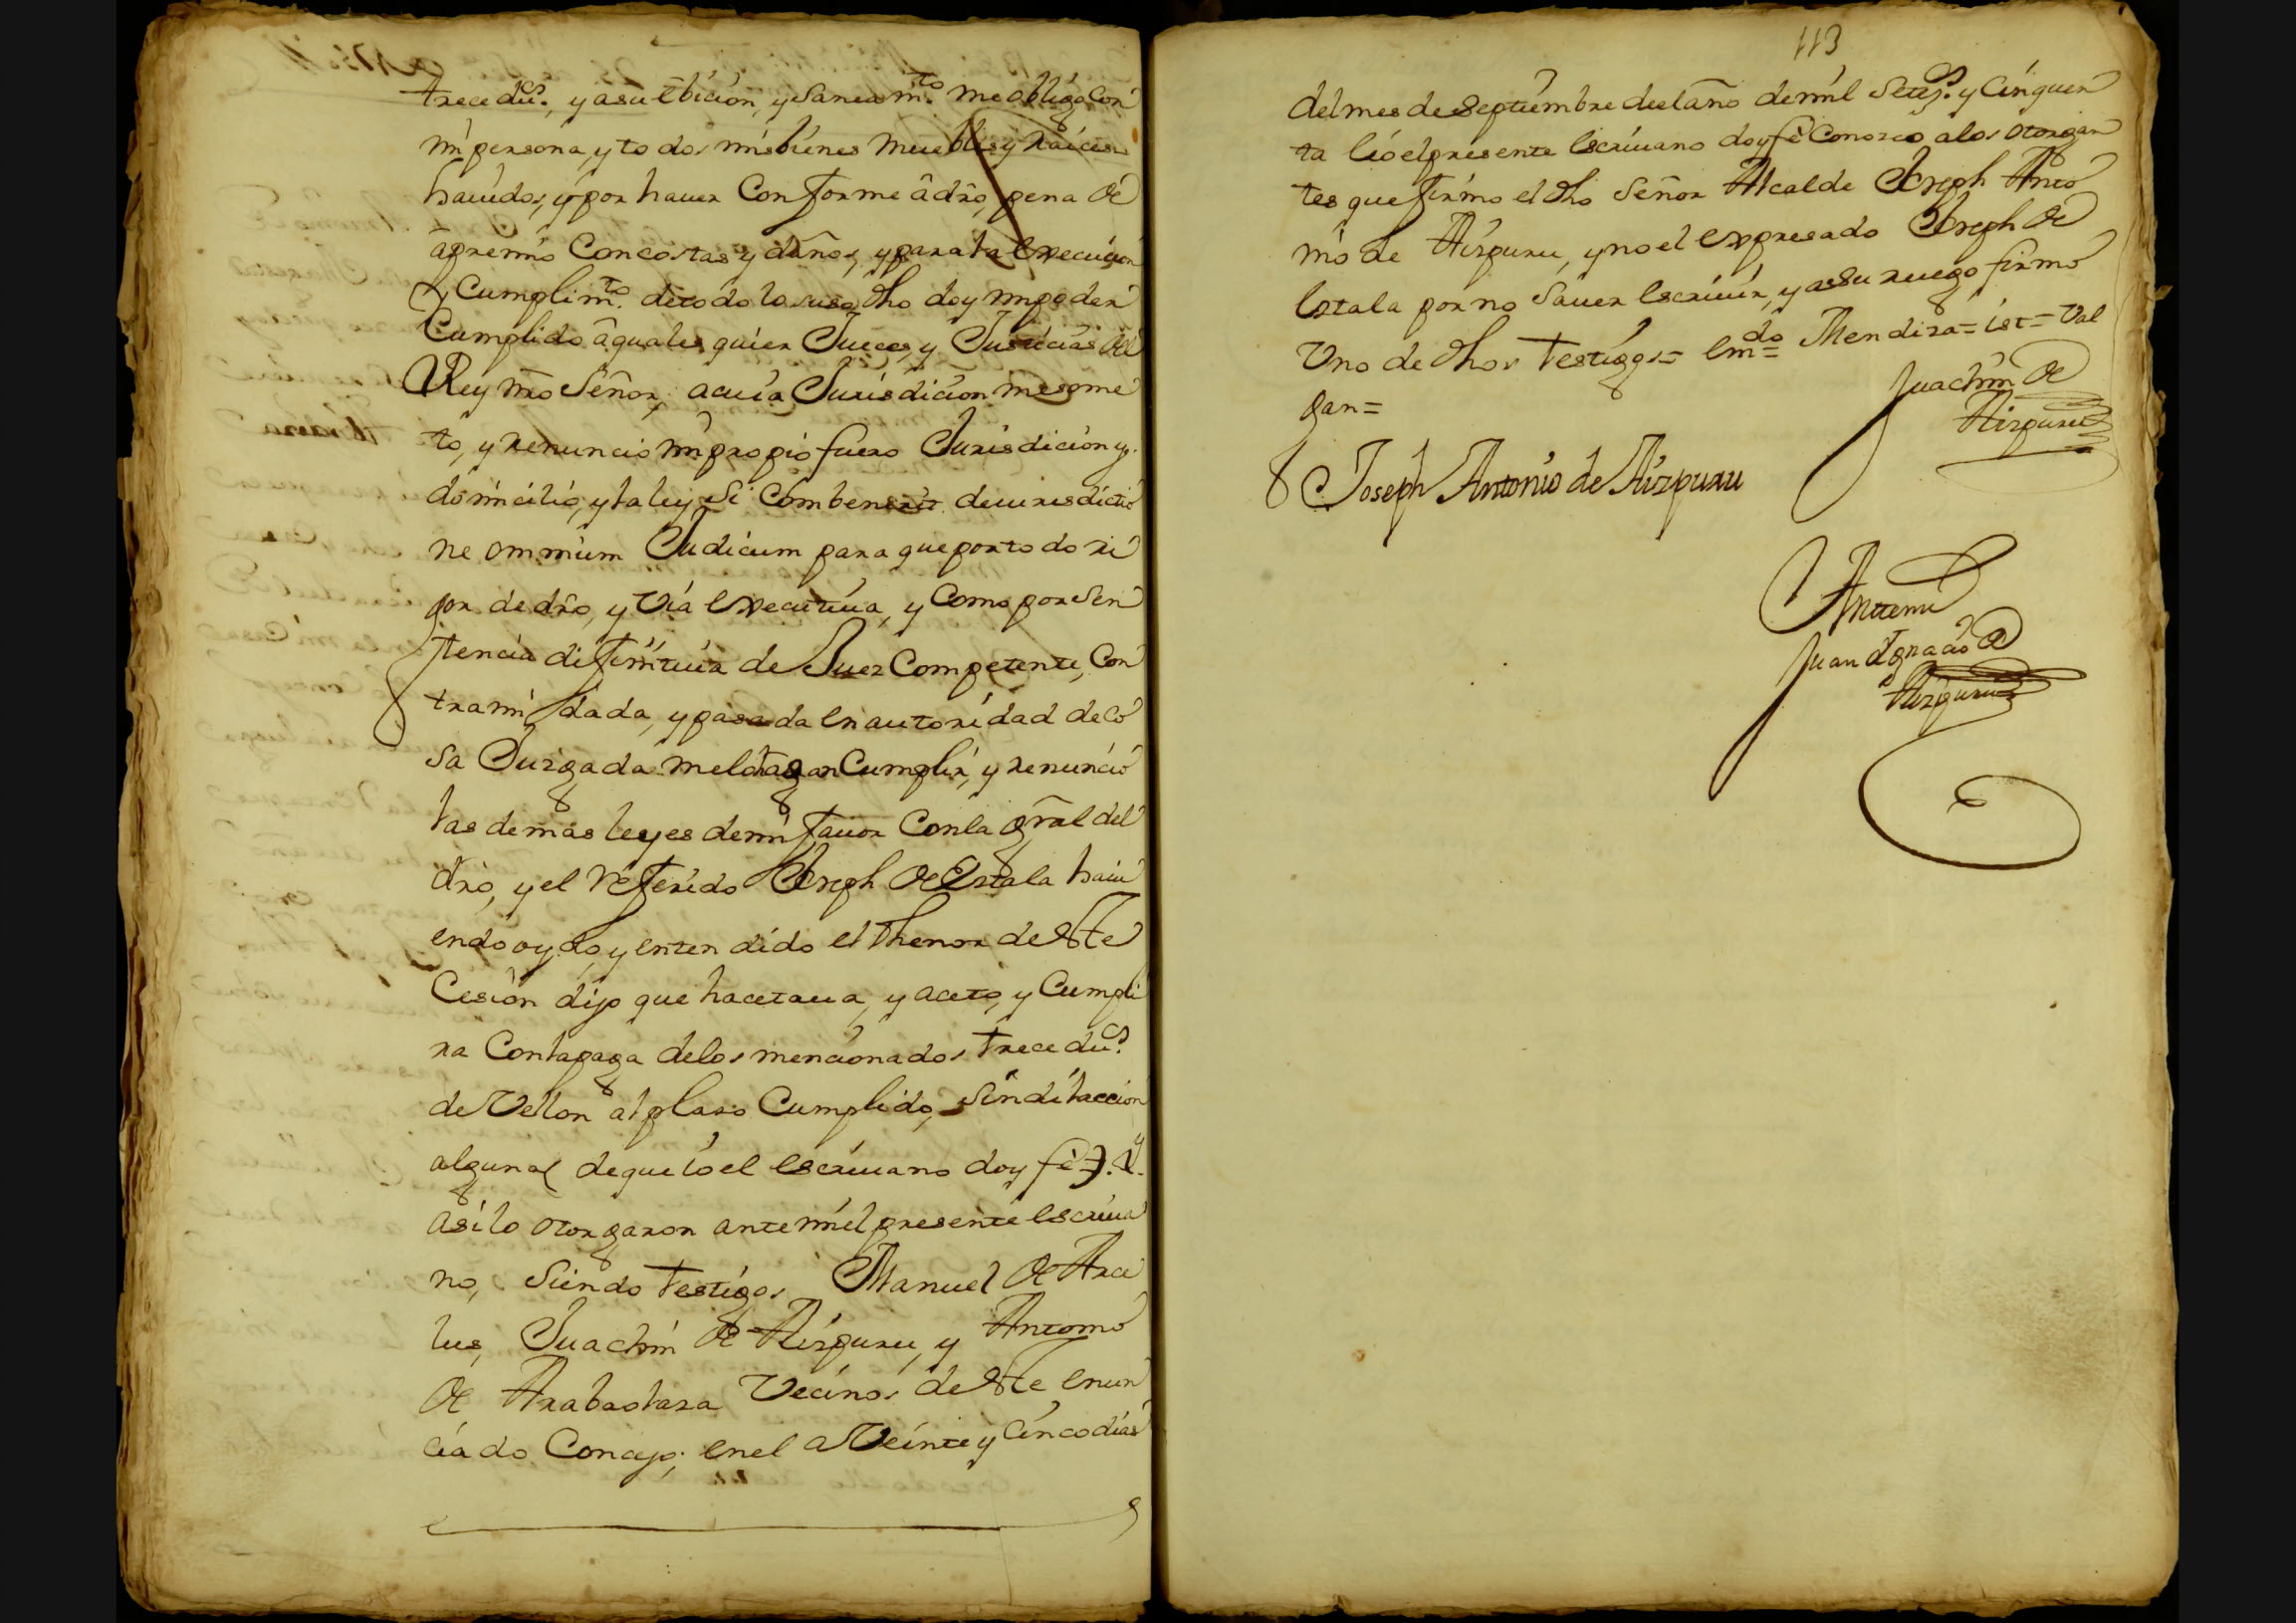 trece du.s, y a su ebicion, y saneam.to me obligo con
mi persona, y todos mis bienes muebles y raices
hauidos, y por hauer conforme â dro, pena de
apremio con costas y daños, y para la execucion
y Cumplim.to de todo lo suso dho doy mi poder
Cumplido â quales quier Jueces, y Justicias del
Rey nro Señor, a cuia Jurisdicion me some
to, y renuncio mi propio fuero Jurisdicion y
domicilio, y la ley Si Combenerit de iurisdictio
ne omnium Judicum para que por todo ri
gor de dro, y via executiua, y como por sen
tencia difinitiua de Juez Competente, con
tra mi dada, y pasada en autoridad de co
sa Juzgada me lo hagan Cumplir, y renuncio
las demas leyes de mi fauor con la gral del
dro, y el referido Joseph de Estala haui
endo oydo, y entendido el thenor de este
Cesion dijo que hacetaua, y aceto, y Cumpli
ra con la paga de los mencionados trece du.s
de Vellon al plazo Cumplido, sin dilaccion
alguna de que io el escriuano doy fè
asi lo otorgaron ante mi el presente escriua
no, siendo testigos Manuel de Arci
lus, Juachin de Aizpuru, y Antonio
de Arabaolaza Vecinos de este enun
ciado Concejo, en el a Veinte y cinco dias
113
del mes de septiembre de el año de mil setez.s y cinquen
ta io el presente escriuano doy fè conozco a los otorgan
tes que firmo el dho Señor Alcalde Joseph Anto
nio de Aizpuru, y no el expresado Joseph de
Estala por no sauer escriuir, y a su ruego firmo
Vno de dhos testigos = em.do = Mendiza = ist = Val
gan =
Juachin de
Aizpuru
Joseph Antonio de Aizpuru
Antemi
Juan Ygnacio de
Aizpuru